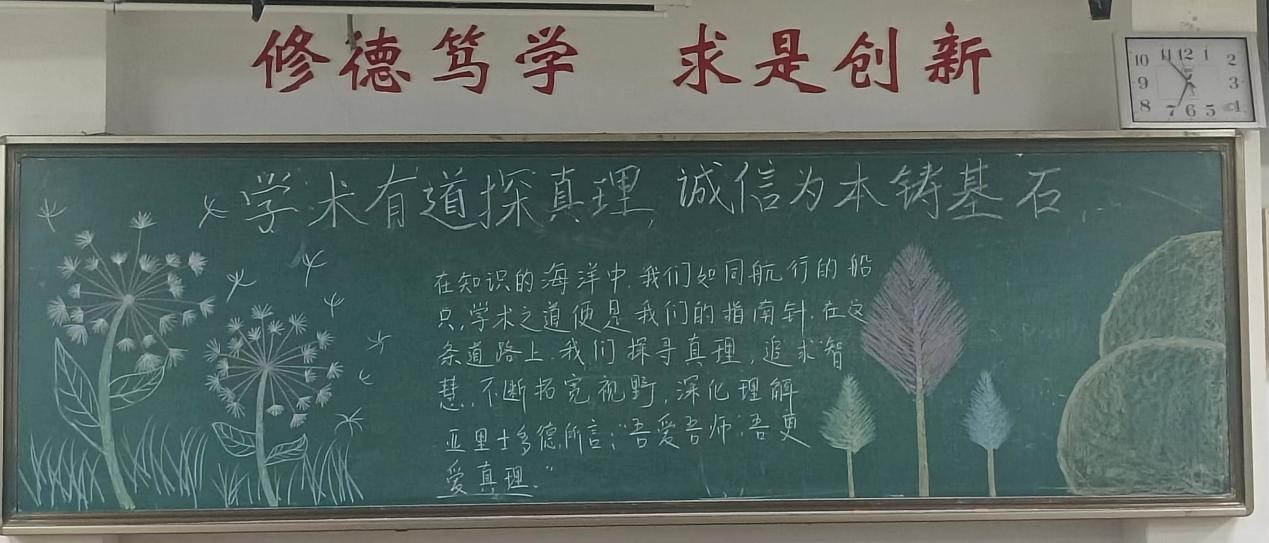 修德笃学 求是创新
学术有道探真理，诚信为本铸基石
在知识的海洋中，我们如同航行的船
只，学术之道便是我们的指南针，在这
条道路上，我们探寻真理，追求智
慧，不断拓宽视野，深化理解
亚里士多德所言：“吾爱吾师，吾更
爱真理。”
11 12 1
10 2
9 3
8 4
7 6 5